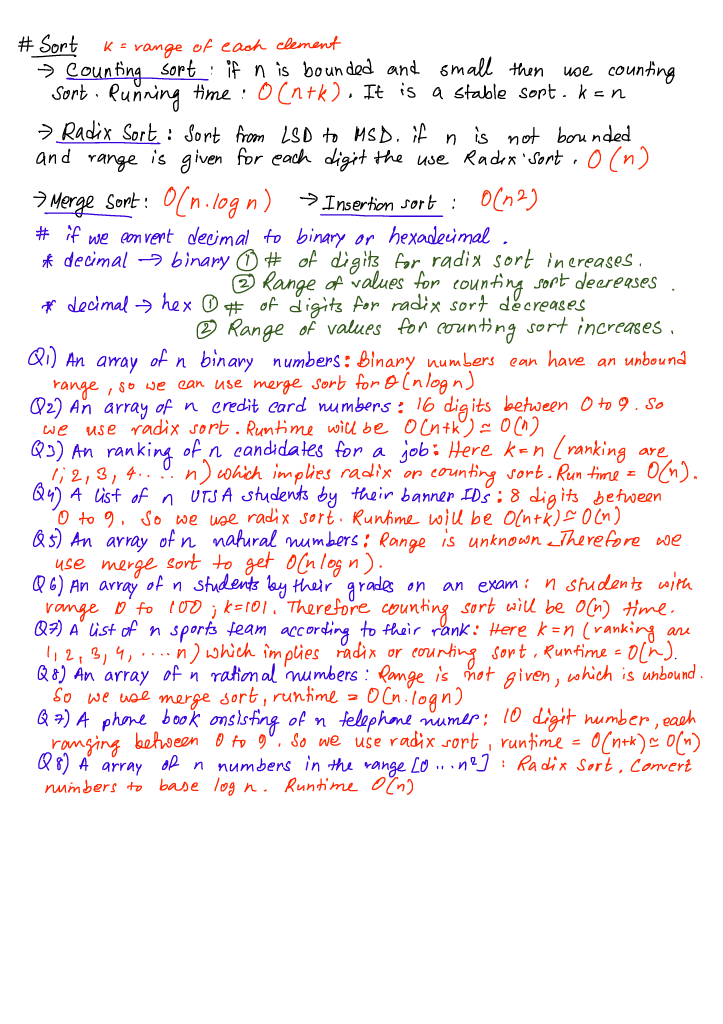 # Sort K = range of each element
→ Counting sort : if n is bounded and small then use counting
sort. Running time : O(n+k). It is a stable sort. k = n
→ Radix Sort : Sort from LSD to MSD. if n is not bounded
and range is given for each digit the use Radix Sort. O(n)
→ Merge Sort : O(n.log n) → Insertion sort : O(n2)
# if we convert decimal to binary or hexadecimal.
* decimal → binary ① # of digits for radix sort increases.
② Range of values for counting sort decreases.
* decimal → hex ① # of digits for radix sort decreases
② Range of values for counting sort increases.
Q1) An array of n binary numbers: Binary numbers can have an unbound
range, so we can use merge sort for θ(nlogn)
Q2) An array of n credit card numbers: 16 digits between 0 to 9. So
we use radix sort. Runtime will be O(n+k) ≃ O(n)
Q3) An ranking of n candidates for a job: Here k=n (ranking are
1, 2, 3, 4..... n) which implies radix or counting sort. Run time = O(n).
Q4) A list of n UTSA students by their banner IDs : 8 digits between
0 to 9. So we use radix sort. Runtime will be O(n+k) ≃ O(n)
Q5) An array of n natural numbers: Range is unknown. Therefore we
use merge sort to get O(nlogn).
Q6) An array of n students by their grades on an exam: n students with
range 0 to 100 ; k=101. Therefore counting sort will be O(n) time.
Q7) A list of n sports team according to their rank: Here k=n (ranking are
1, 2, 3, 4, .... n) which implies radix or counting sort. Runtime = O(n).
Q8) An array of n rational numbers : Range is not given, which is unbound.
So we use merge sort, runtime = O(n.logn)
Q7) A phone book onsisting of n telephone numer: 10 digit number, each
ranging between 0 to 9. So we use radix sort, runtime = O(n+k) ≃ O(n)
Q8) A array of n numbers in the range [0 ... n2] : Radix Sort. Convert
numbers to base log n. Runtime O(n)